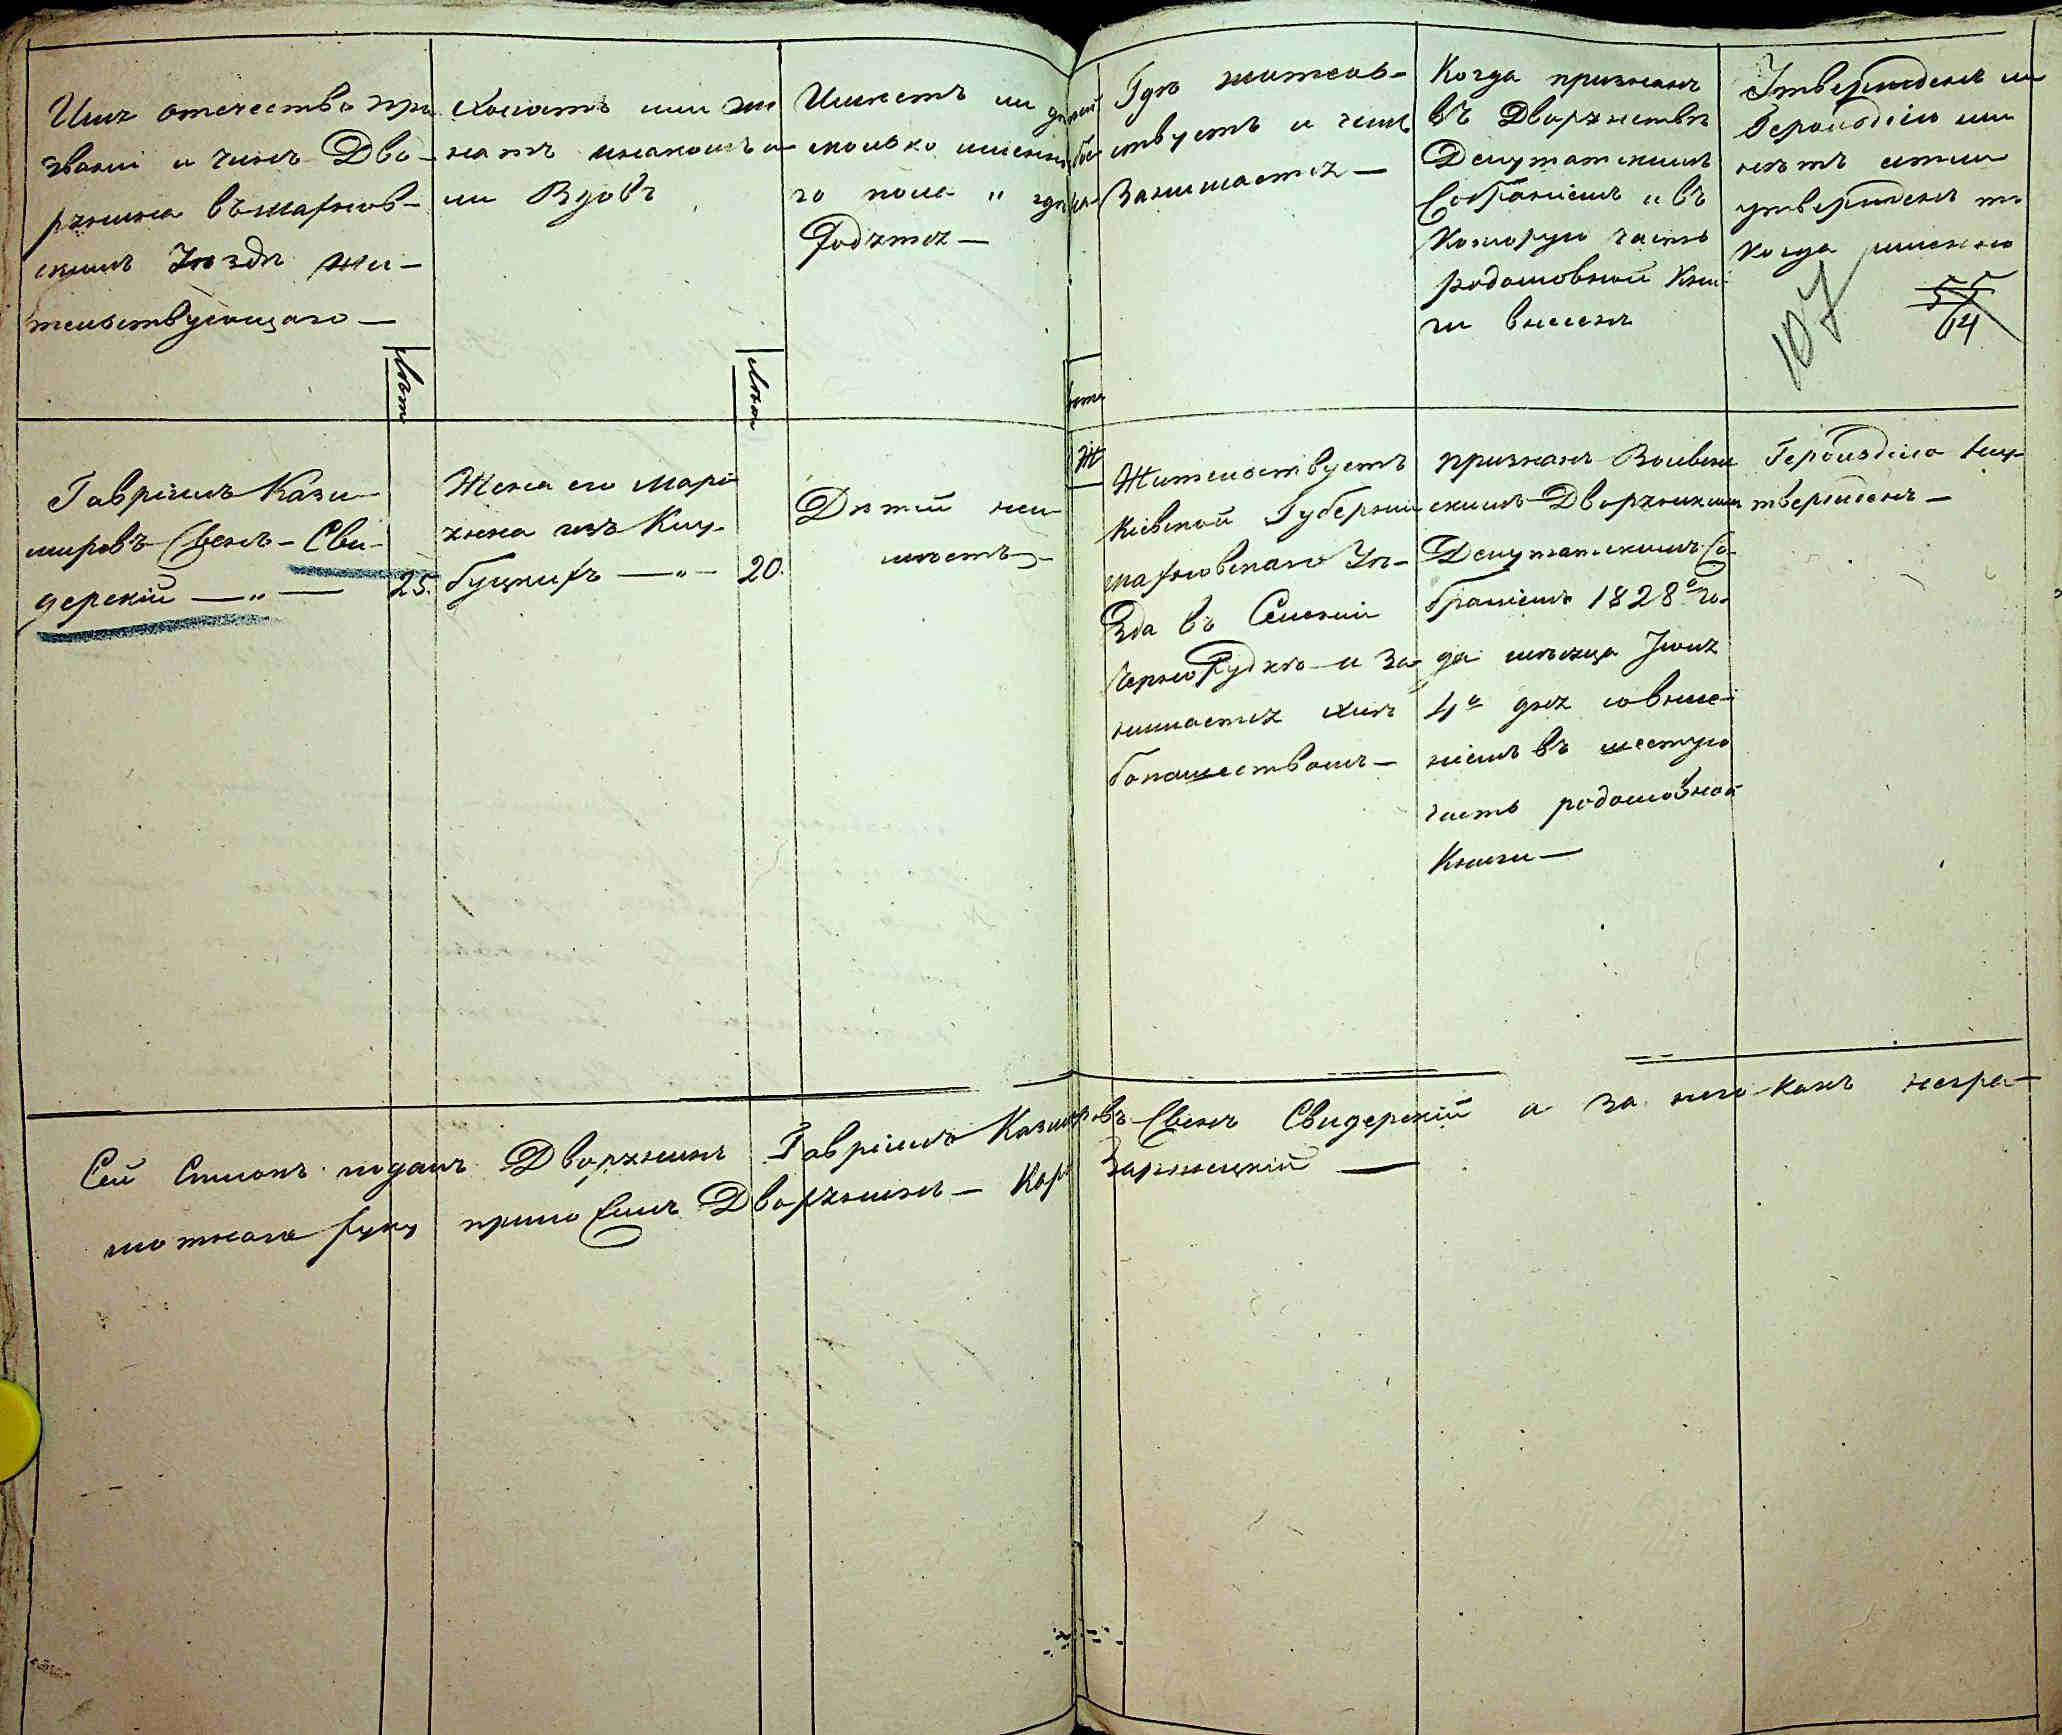 Имя отечество про
звание и чинъ Дво-
рянина въ махнов-
скимъ Уезде жи-
тельствующаго —
Летъ
Холостъ или же
натъ на комъ и-
ли Вдовъ
Летъ
Имеетъ ли детей
сколько именно обое
го пола и где на-
ходятся —
Где житель-
ствуетъ и чемъ
Занимается —
Когда признанъ
въ Дворянстве
Депутатскимъ
Собраніемъ и въ
Которую часть
родословной Кни-
ги внесенъ
Утвержденъ ли
Герольдіею или
нетъ если
утвержденъ то
когда именно
107
55
64
Гавріилъ Кази-
мировъ Свенъ - Сви-
дерскій — „ — 25.
Жена его Марі
яна изъ Кну-
буцкихъ — „ — 20.
Детей неи-
меетъ —
Ж
Жительствуетъ
Кіевской Губерніи
махновскаго Уе-
зда въ Селеніи
Чернорудке и За-
нимается хле-
бопашествомъ —
признанъ Волын
скимъ Дворянским
Депутатскимъ Со-
браніемъ 1828го го-
да месяца Іюня
4го дня совнесе-
ніемъ въ шестую
часть родословной
Книги —
Герольдіею неу-
твержденъ —
Сей Списокъ подалъ Дворянинъ Гавріилъ Казимировъ Свенъ Свидерскій а за него какъ негра-
мотнаго руку приложилъ Дворянинъ — Кар Зарницкій —